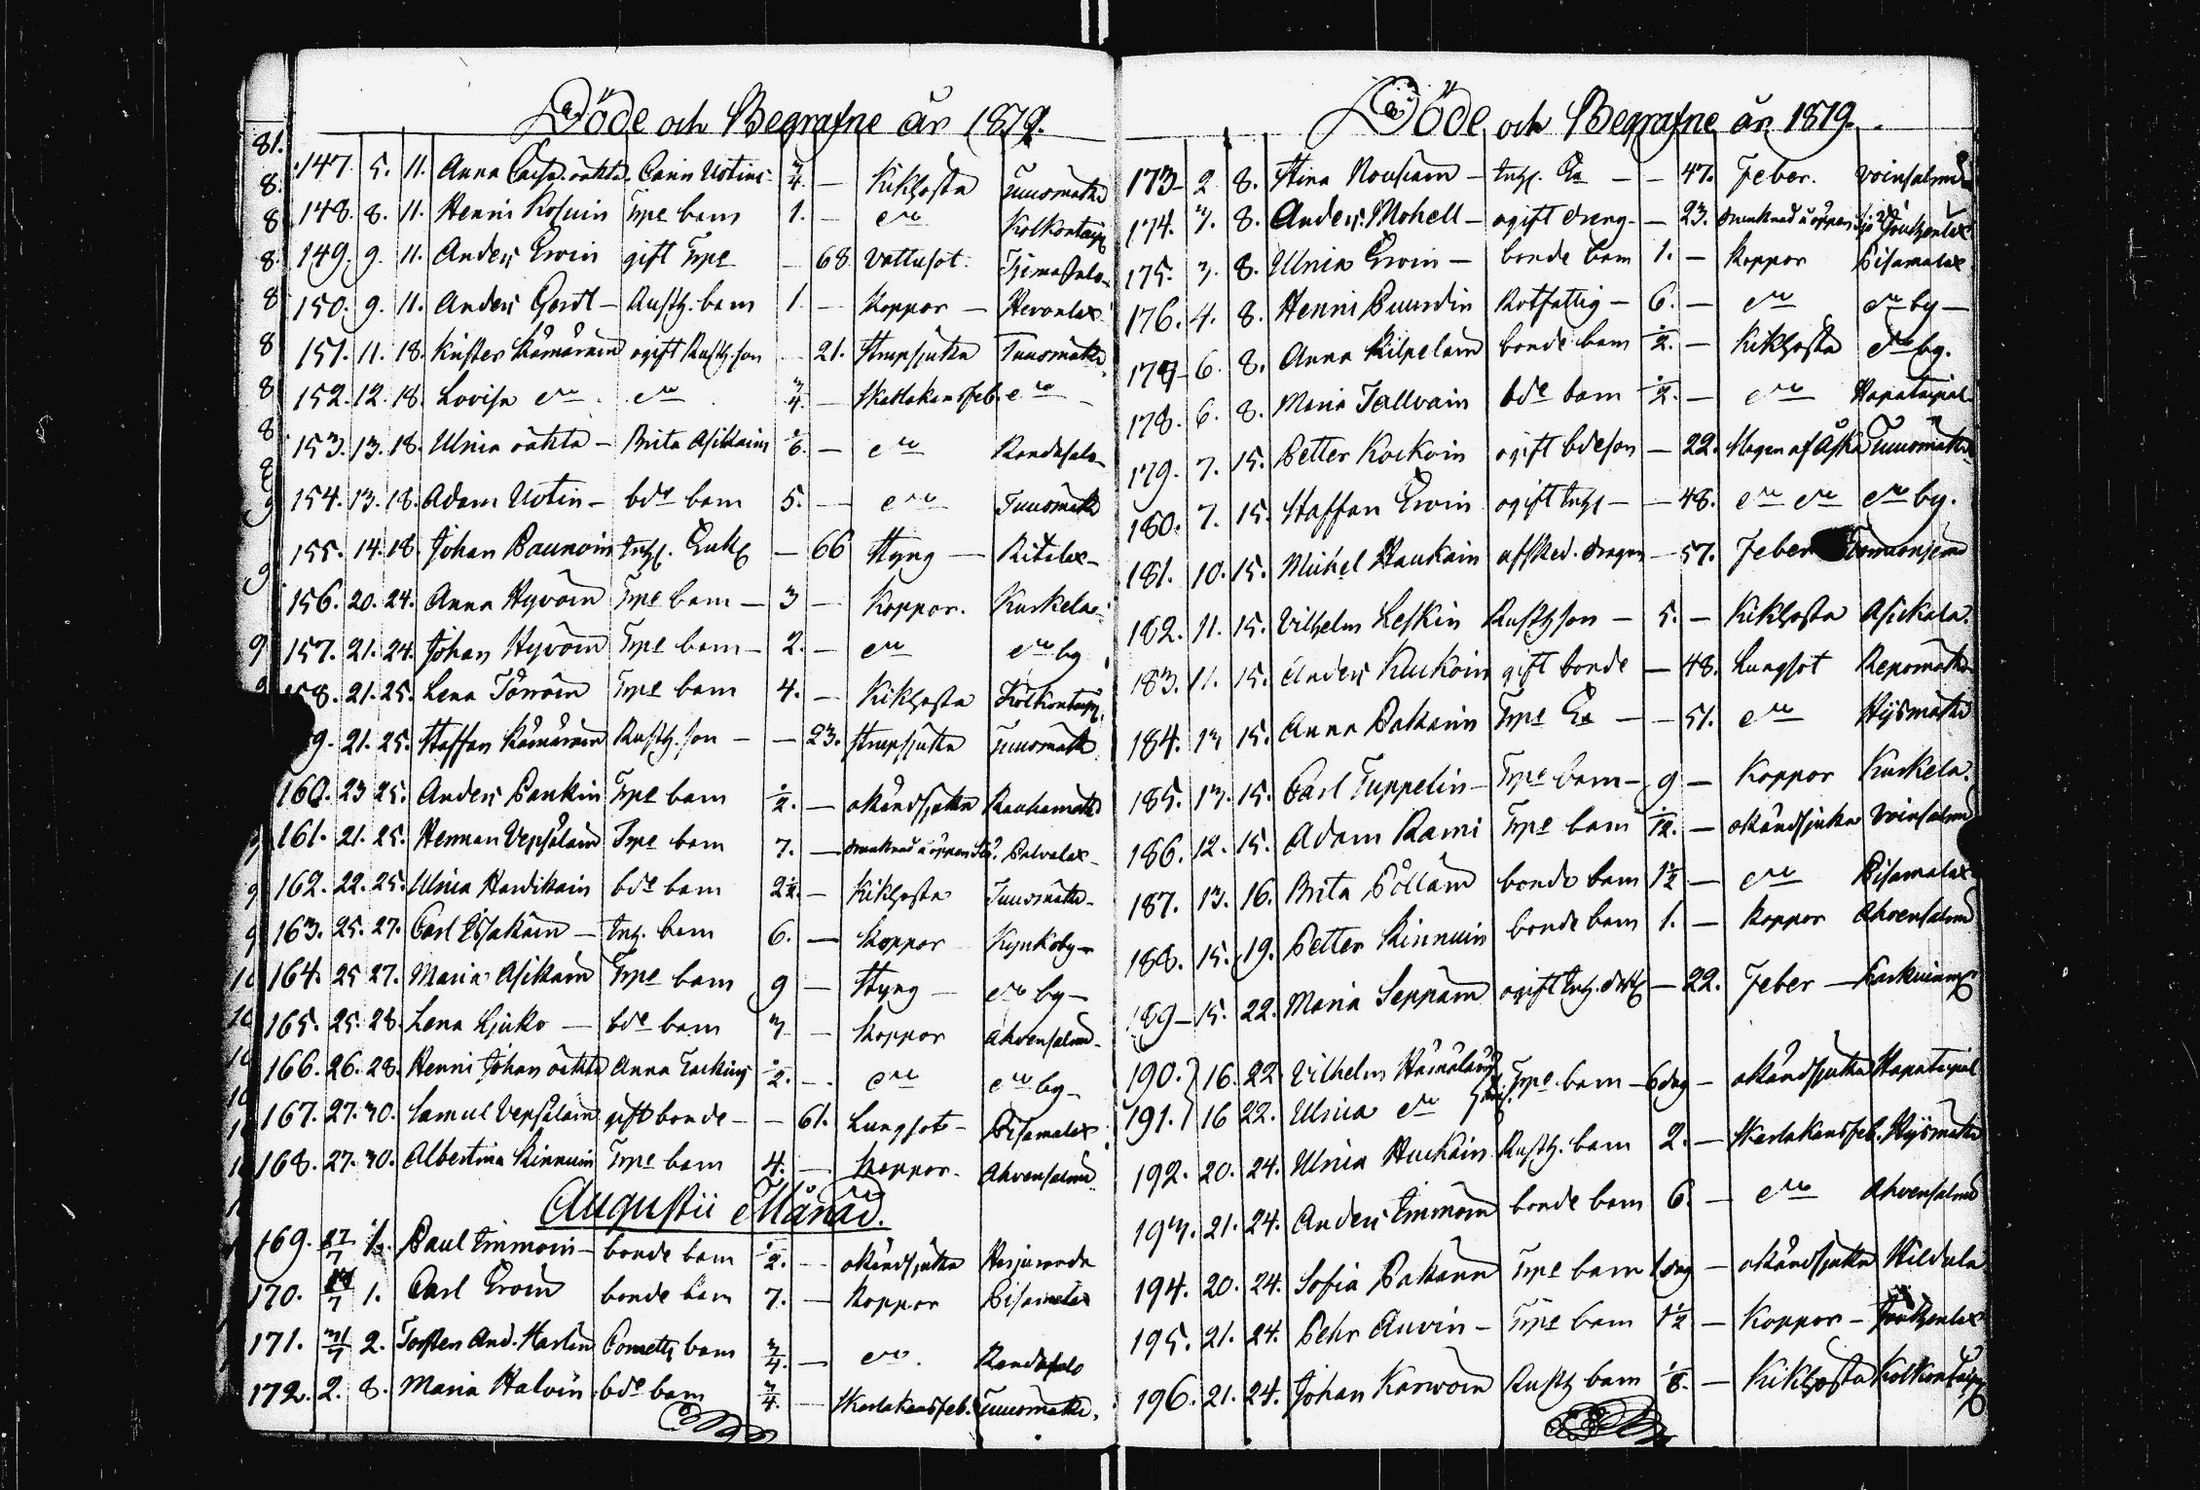 Döde och Begrafne år 1879.
147. 5. 11. Anna Caisa oäkta, Carin Ustins 3/4. — Kikhosta Tuusmäki
148. 8. 11. Henric Kosuin Trpe barn 1. — dto Kolkontaip
149. 9. 11. Anders Ervin gift Trpe — 68 Vattusot.
150. 9. 11. Anders — Rusth. barn 1. — Koppor — Hevonlax
151. 11. 18. Krister Hämäräin ogift Rusth. son — 21. Strupsjuka Tuusmäki
152. 12. 18. Lovisa dto dto 3/4. — Skarlakansfeb. dto
153. 13. 18. Ulrica oäkta — Brita Asikains 1/6. — dto Randasalo
154. 13. 18. Adam Ustin — bde barn 5. — dto Tuusmäki
155. 14. 18. Johan Paunoin Inhs. Enkl — 66 Styng — Ritolax —
156. 20. 24. Anna Hyvöin Trpe barn — 3 — Koppor. Kurkela
157. 21. 24. Johan Hyvöin Trpe barn — 2. — dto dto by
158. 21. 25. Lena Törröin Trpe barn 4. — Kikhosta Kolkontaip.
9. 21. 25. Staffan Hämäräin Rusth. son — — 23. Strupsjuka Tuusmäki
160. 23 25. Anders Pankin Trpe barn 1/2. — okändsjuka Rauhamäki
161. 21. 25. Herman Vepsäläin Trpe barn 7. — drunknad i öppen Sjö. Palvalax
162. 22. 25. Ulrica Hardikain bde barn 2 1/2 — Kikhosta Tuusmäki —
163. 25. 27. Carl — Inh. barn 6. — Koppor Kynkoby —
164. 25 27. Maria Asikain Trpe barn 9 — Styng — dto by —
165. 25. 28. Lena Ljuko — bde barn 3 — Koppor Ahvensalmi
166. 26. 28. Henric Johan oäkta Anna 1/2. — dto dto by —
167. 27. 30. Samul Vepsäläin gift bonde — — 61. Lungsot — Pisamalax
168. 27. 30. Albertina Kinnuin Trpe barn 4. — Koppor. Ahvensalmi
Augustii Månad.
169. 27/7 1/8. Paul Immoin — bonde barn 1/2. — okändsjuka Harjuranda
170. 1. Carl Ervin bonde barn 7. — Koppor Pisamalax
171. 31/7 2. Torsten And. Harlin barn 3/4. — dto. Randasalo
172. 2. 8. Maria Halvin bde barn 3/4. — Skarlakansfeb. Tuusmäki.
Döde och Begrafne år 1879.
173 — 2 8. Stina Nousiain — Inhs. Ea — — 47. Feber. Voinsalmi
174. 3. 8. Anders Mohell — ogift dreng — — 23. drunknad i öppen sjö Joukenlax
175. 3. 8. Ulrica Ervin — bonde barn 1. — Koppor Pisamalax
176. 4. 8. Henric Puurdin Rotfattig — 6. — dto dto by —
177 — 6. 8. Anna Kilpeläin bonde barn 1/2. — Kikhosta dto by.
178. 6. 8. Maria Tallvain bde barn 1/2. — dto Hapataipal
179. 7. 15. Petter Kockoin ogift bdeson — 22. Slagen af Åska Tuusmäki
180. 7. 15. Staffan Ervin ogift Inhs — — 48. dto dto dto by.
181. 10. 15. Michel Haukain afsked. dragon — 57. Feber
182. 11. 15. Vilhelm Leskin Rusthson — 5. — Kikhosta Asickala.
183. 11. 15. Anders Kuckoin gift bonde — 48. Lungsot Repomäki
184. 13 15. Anna Pakarin Trpe Ea — — 51. dto Hysmäki
185. 13. 15. Carl Tuppelin — Trpe barn — 9 — Koppor Kurkela.
186. 12. 15. Adam Rami Trpe barn 1/12. — okändsjuka Voinsalmi
187. 13. 16. Brita Pölläin bonde barn 1 1/2 — dto Pisamalax
188. 15. 19. Petter Kinnuin bonde barn 1. — Koppor Ahvensalmi
189 — 15. 22. Maria Seppäin ogift Inh. dotr — 22. Feber —
190. } 16. 22. Vilhelm Hämäläin Trpe barn — 6 dag — okändsjuka Hapataipal
191. } 16 22. Ulrica dto
192. 20. 24. Ulrica Huckain Rusth. barn 2. — Skarlakansfeb. Hysmäki
193. 21. 24. Anders Immoin bonde barn 6. — dto Ahvensalmi
194. 20. 24. Sofia Pakarin Trpe barn 1 dag — okändsjuka Hildula
195. 21. 24. Pehr Auvin — Trpe barn 1 1/2 — Koppor — Joukenlax
196. 21. 24. Johan Karvoin Rusth barn 1/8. — Kikhosta Kolkontaip